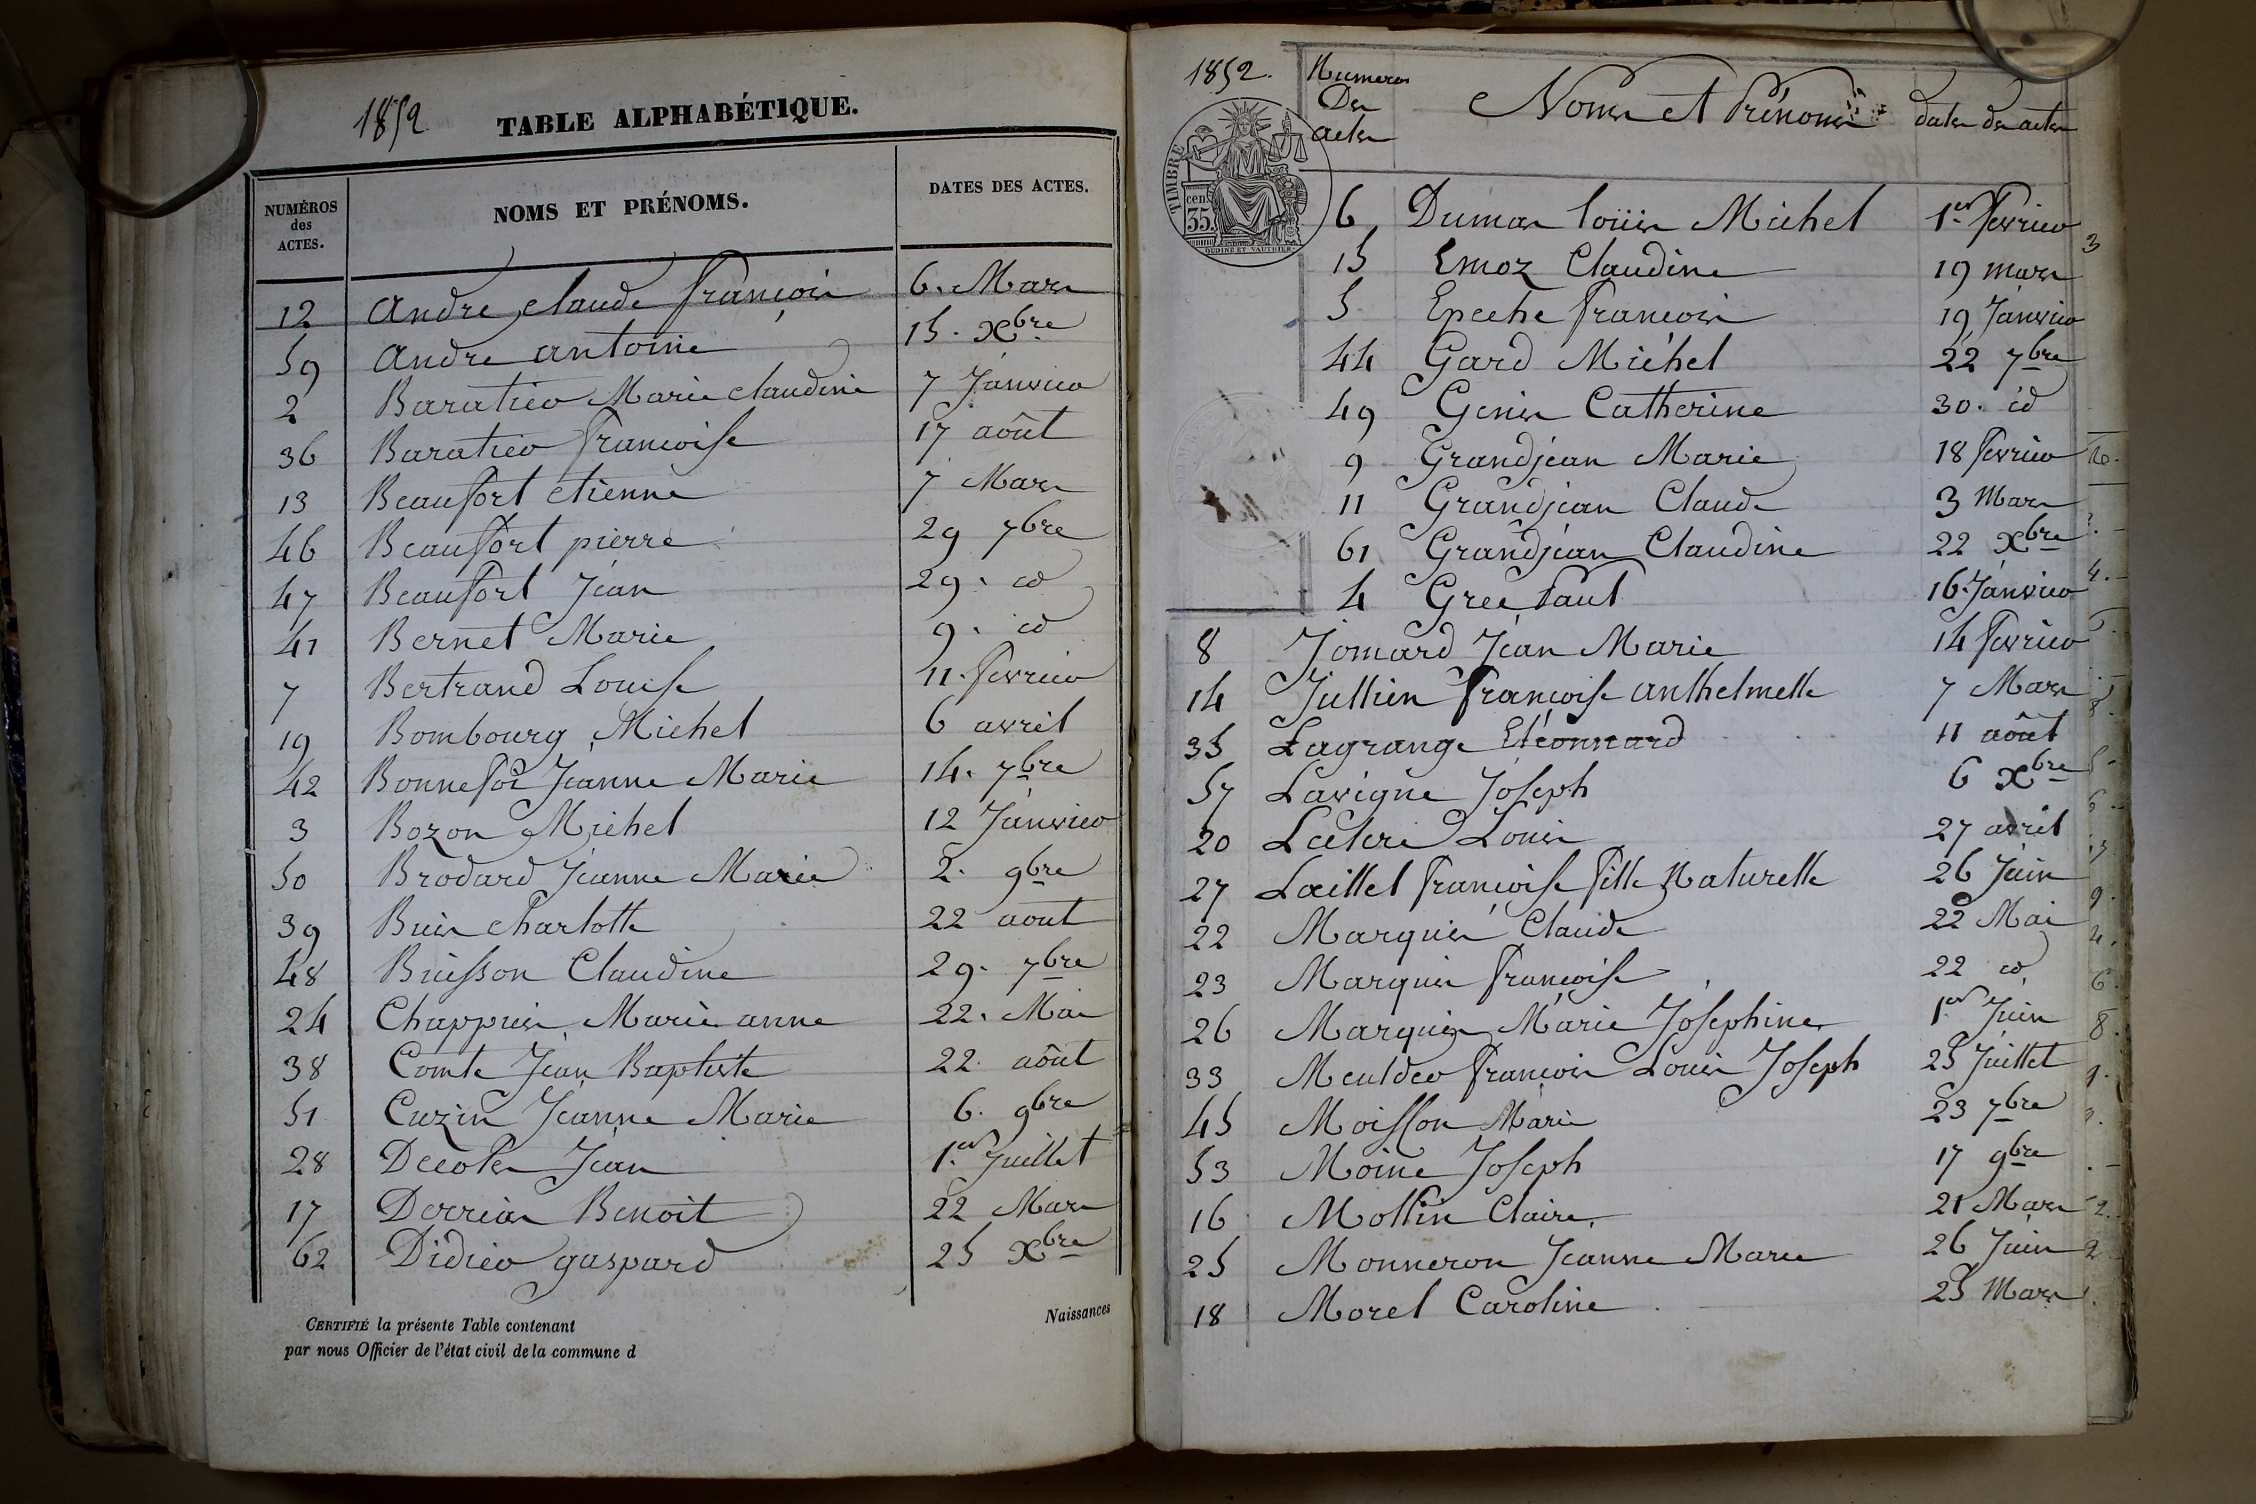 1852
TABLE ALPHABÉTIQUE.
NUMÉROS
des
ACTES.
NOMS ET PRÉNOMS.
DATES DES ACTES.
12 andre claude françois 6. Mars
59 andre antoine 15. Xbre
2 Baratier Marie claudine 7 Janvier
36 Baratier francoise 17 août
13 Beaufort etienne 7 Mars
46 Beaufort pierre 29 7bre
47 Beaufort Jean 29. id
41 Bernet Marie 9. id
7 Bertrand Louise 11. fevrier
19 Bombourg Michel 6 avril
42 Bonnefoi Jeanne Marie 14. 7bre
3 Bozon Michel 12 Janvier
50 Brodard Jeanne Marie 2. 9bre
39 Buis charlotte 22 aout
48 Buisson Claudine 29. 7bre
24 Chappuis Marie anne 22. Mai
38 Comte Jean Baptiste 22 août
51 Cuzin Jeanne Marie 6. 9bre
28 Decoles Jean 1.er Juillet
17 Derrias Benoit 22 Mars
62 Didier gaspard 25 Xbre
CERTIFIÉ la présente Table contenant
Naissances
par nous Officier de l'état civil de la commune d
1852.
Numeros
Des
actes
Noms et Prénoms
dates des actes
TIMBRE
35 cen
OUDINÉ ET VAUTHIER
6 Dumas louis Michel 1.er fevrier
15 Emoz Claudine 19 mars
5 Epeche francois 19 Janvier
44 Gard Michel 22 7bre
49 Genis Catherine 30. id
9 Grandjean Marie 18 fevrier
11 Grandjean Claude 3 Mars
61 Grandjean Claudine 22 Xbre
4 Gree Paul 16. Janvier
8 Jomard Jean Marie 14 fevrier
14 Jullien françoise anthelmette 7 Mars
35 Lagrange Eléonnard 11 août
57 Lavigne Joseph 6 Xbre
20 Louis 27 avril
27 Laillet françoise fille Naturelle 26 Juin
22 Marquis Claude 22 Mai
23 Marquis francoise 22 id
26 Marquis Marie Josephine 1.er Juin
33 françois Louis Joseph 25 Juillet
45 Moisson Marie 23 7bre
53 Moine Joseph 17 9bre
16 Mollin Claire 21 Mars
25 Monneron Jeanne Marie 26 Juin
18 Morel Caroline 25 Mars